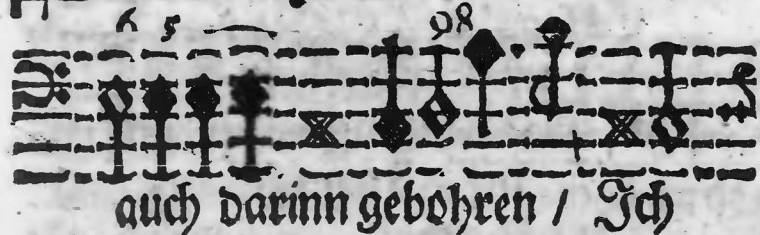 6 5 98
auch darinn gebohren / Ich